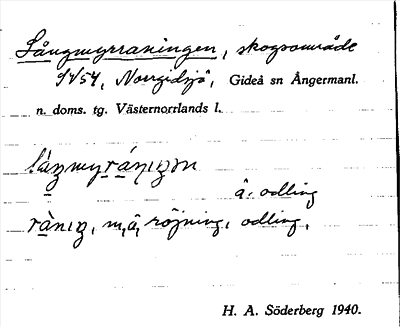 Långmyrraningen, skogsområde
SV54, Norrgidsjö, Gideå sn Ångermanl.
n. doms. tg. Västernorrlands l.
å. odling
röjning, odling.
H. A. Söderberg 1940.